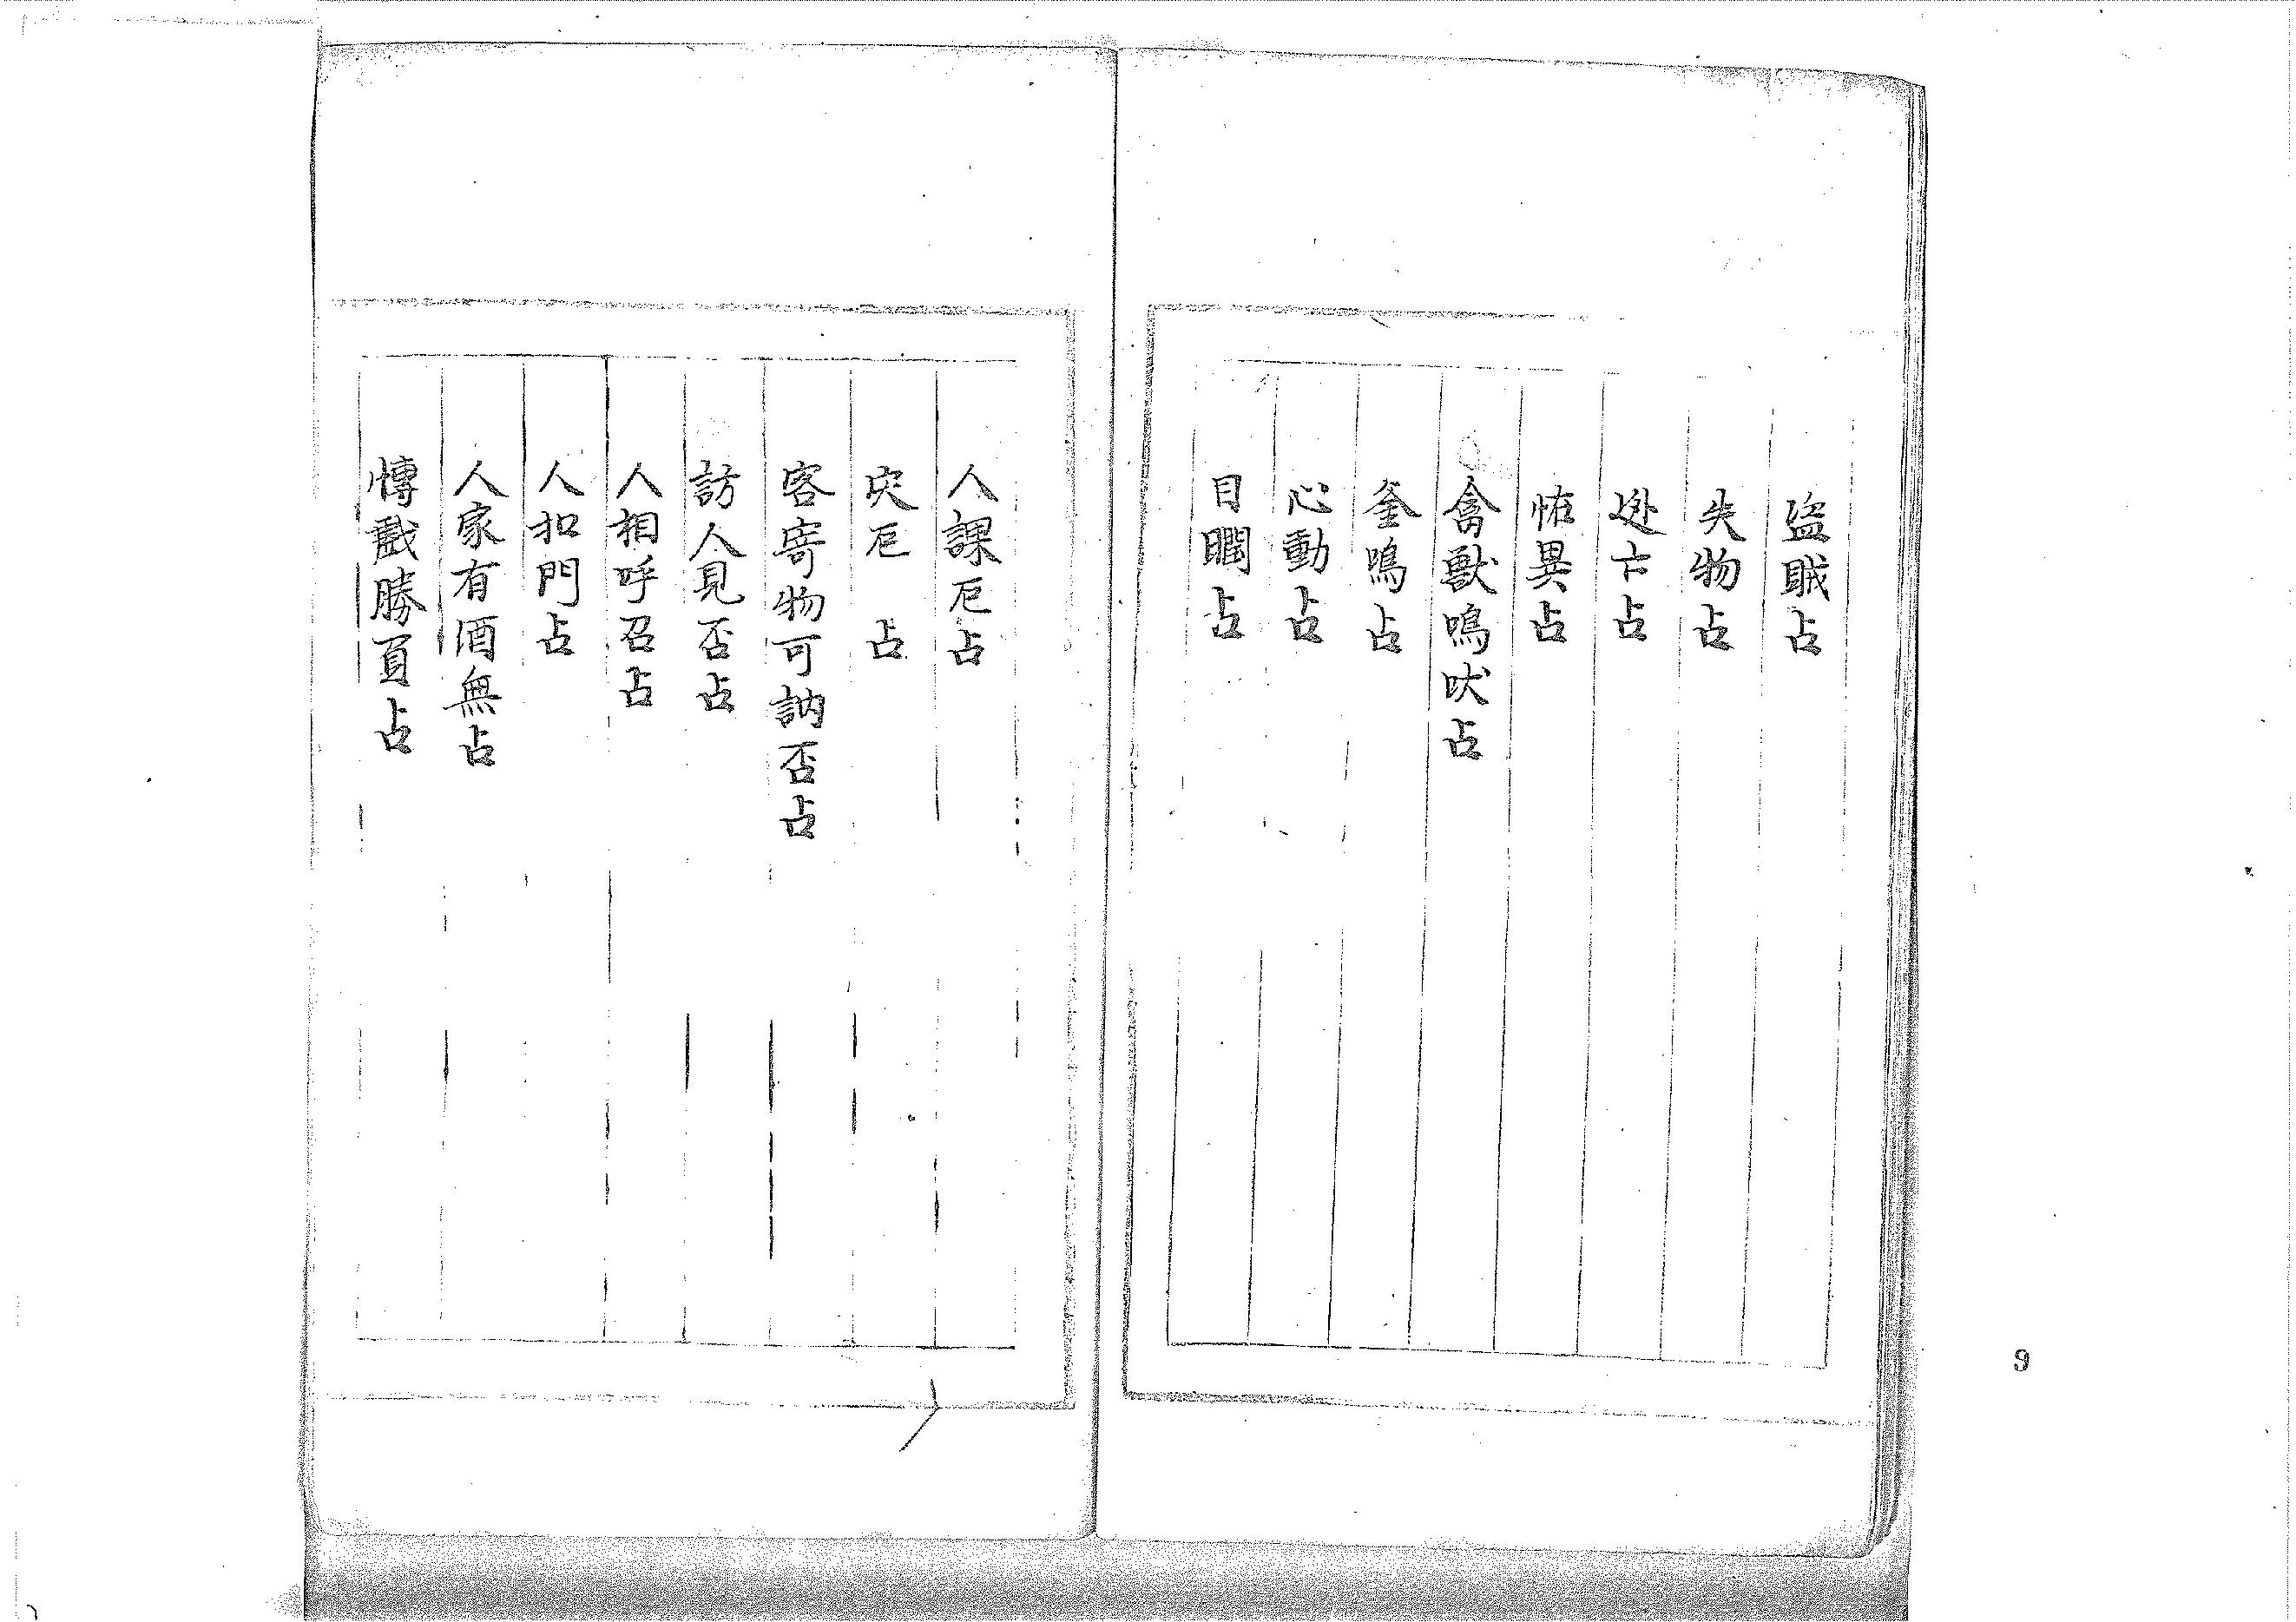 盜賊占
失物占
逃亡占
恠異占
禽獸鳴吠占
釜鳴占
心動占
目瞤占
人課厄占
灾厄占
客寄物可訥否占
訪人見否占
人相呼召占
人扣門占
人家有酒無占
愽戲勝負占
9